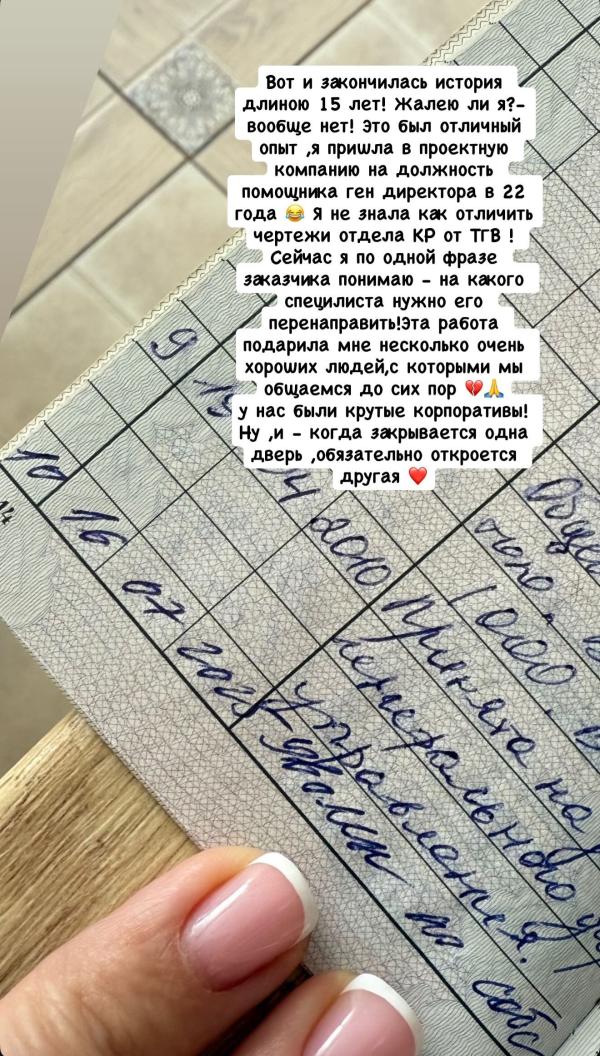 Вот и закончилась история
длиною 15 лет! Жалею ли я?-
вообще нет! Это был отличный
опыт ,я пришла в проектную
компанию на должность
помощника ген директора в 22
года 😂 Я не знала как отличить
чертежи отдела КР от ТГВ !
Сейчас я по одной фразе
заказчика понимаю - на какого
специлиста нужно его
перенаправить!Эта работа
подарила мне несколько очень
хороших людей,с которыми мы
общаемся до сих пор 💔🙏
у нас были крутые корпоративы!
Ну ,и - когда закрывается одна
дверь ,обязательно откроется
другая ❤️
9 19 04 2010 Принята на
генерального
управления.
10 16 07
Общес
1000.
по собс
14